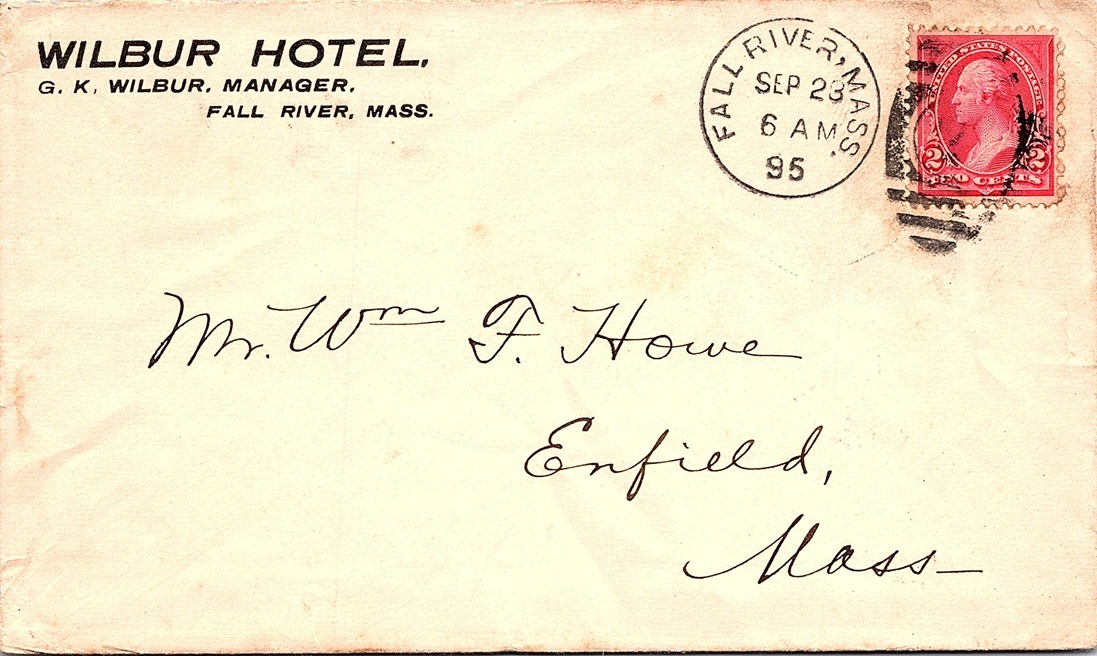 WILBUR HOTEL.
G. K. WILBUR, MANAGER.
FALL RIVER, MASS.
FALL RIVER, MASS.
SEP 23
6 AM
95
UNITED STATES POSTAGE
2 2
TWO CENTS
Mr. Wm F. Howe
Enfield,
Mass